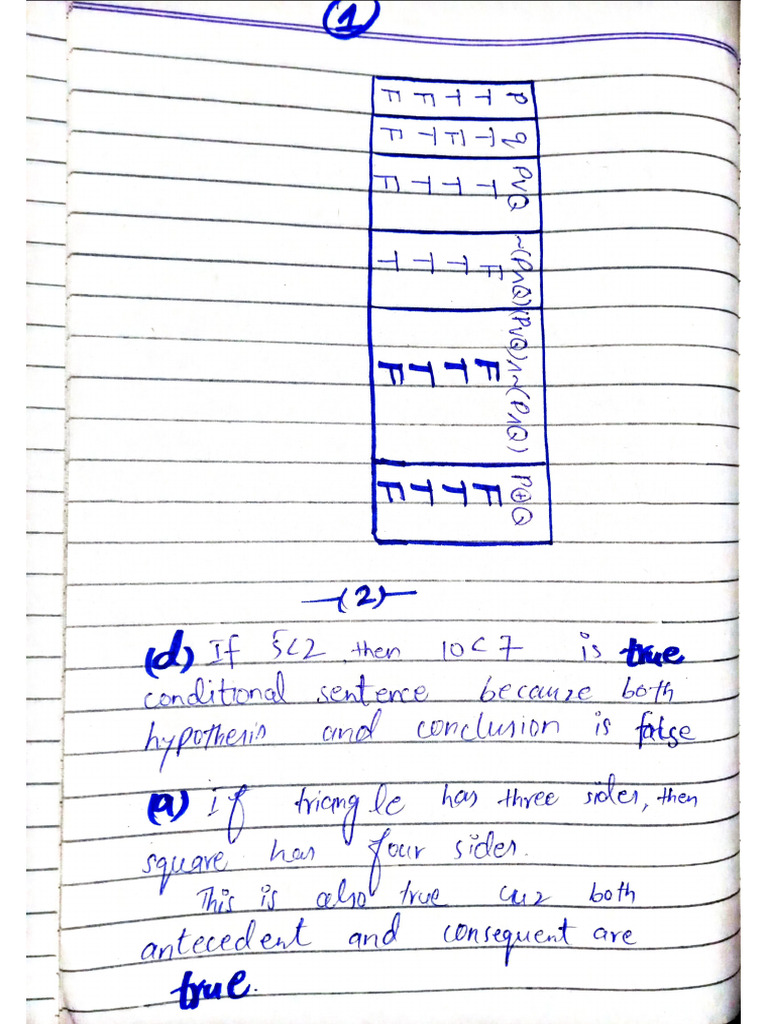 (1)
P q PvQ ~(P∧Q) (PvQ)∧~(P∧Q) P⊕Q
T T T F F F
T F T T T T
F T T T T T
F F F T F F
—(2)—
(d) If 5<2, then 10<7 is true
conditional sentence because both
hypothesis and conclusion is false
(a) if triangle has three sides, then
square has four sides.
This is also true cuz both
antecedent and consequent are
true.